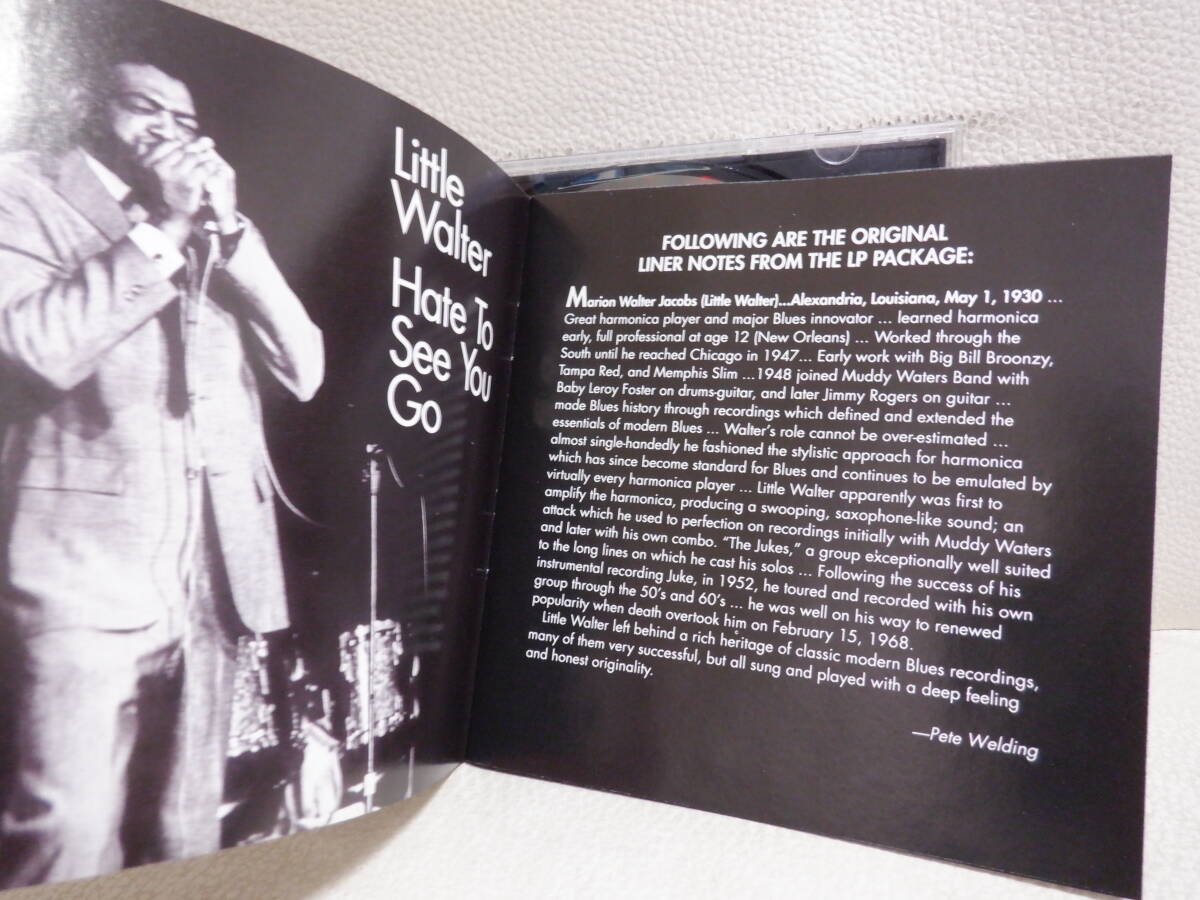 Little
Walter
Hate To
See You
Go
FOLLOWING ARE THE ORIGINAL
LINER NOTES FROM THE LP PACKAGE:
Marion Walter Jacobs (Little Walter)...Alexandria, Louisiana, May 1, 1930 ...
Great harmonica player and major Blues innovator ... learned harmonica
early, full professional at age 12 (New Orleans) ... Worked through the
South until he reached Chicago in 1947... Early work with Big Bill Broonzy,
Tampa Red, and Memphis Slim ...1948 joined Muddy Waters Band with
Baby Leroy Foster on drums-guitar, and later Jimmy Rogers on guitar ...
made Blues history through recordings which defined and extended the
essentials of modern Blues ... Walter's role cannot be over-estimated ...
almost single-handedly he fashioned the stylistic approach for harmonica
which has since become standard for Blues and continues to be emulated by
virtually every harmonica player ... Little Walter apparently was first to
amplify the harmonica, producing a swooping, saxophone-like sound; an
attack which he used to perfection on recordings initially with Muddy Waters
and later with his own combo. "The Jukes," a group exceptionally well suited
to the long lines on which he cast his solos ... Following the success of his
instrumental recording Juke, in 1952, he toured and recorded with his own
group through the 50's and 60's ... he was well on his way to renewed
popularity when death overtook him on February 15, 1968.
Little Walter left behind a rich heritage of classic modern Blues recordings,
many of them very successful, but all sung and played with a deep feeling
and honest originality.
—Pete Welding